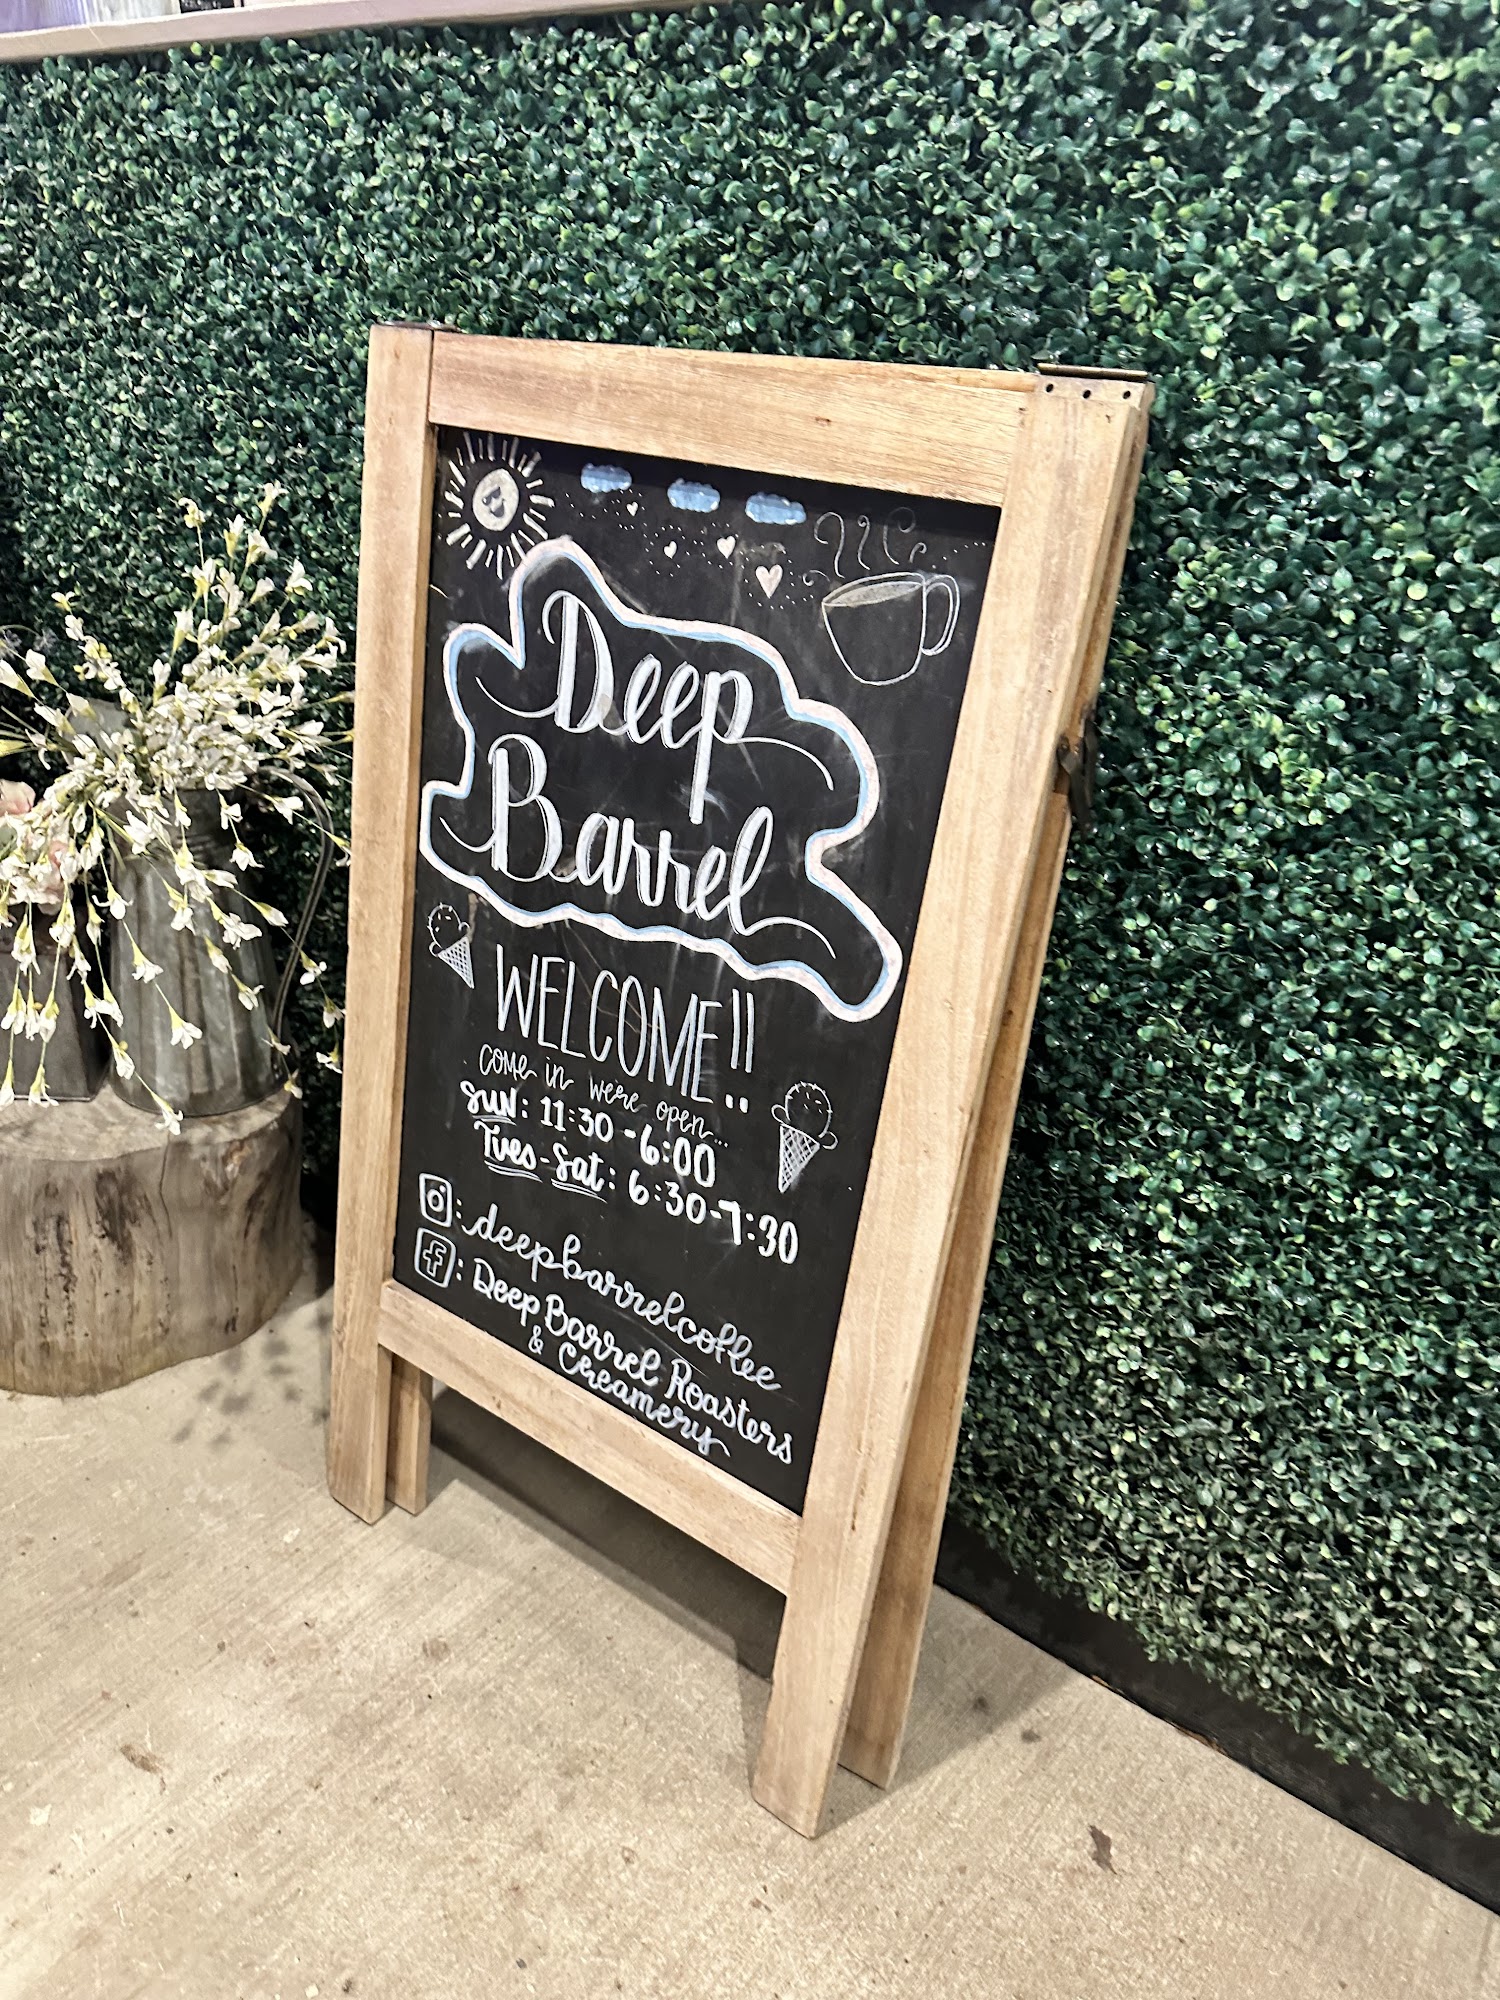 Deep
Barrel
WELCOME!!
come in we're open...
Sun: 11:30-6:00
Tues-Sat: 6:30-7:30
: deepbarrelcoffee
: Deep Barrel Roasters
& Creamery